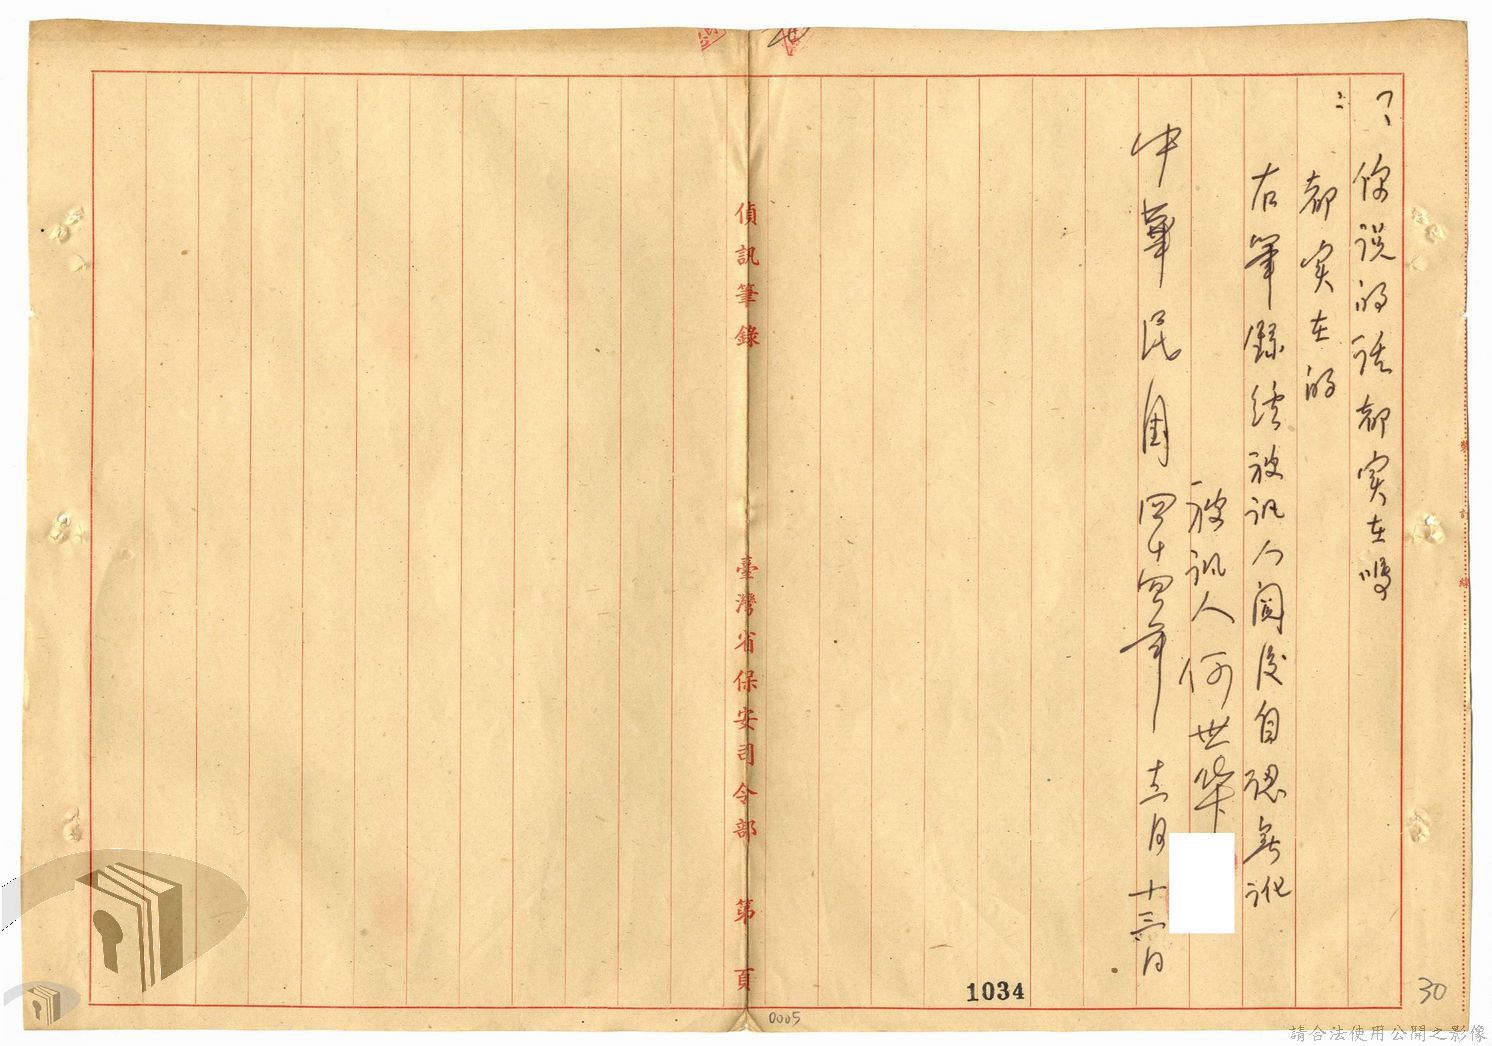 ？你説的话都实在嗎
：都实在的
右筆録經被訊人閲後自認無訛
被訊人何世华
中華民国四十四年 月十三日
偵訊筆錄 臺灣省保安司令部 第 頁
1034
0005
30
請合法使用公開之影像